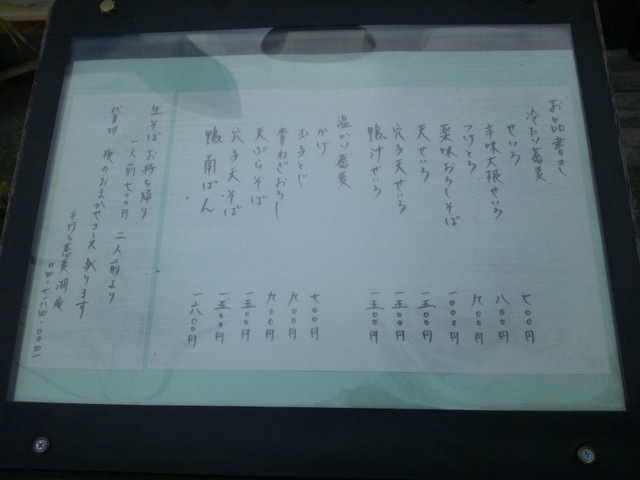 お品書き
冷たい蕎麦
せいろ 七〇〇円
辛味大根せいろ 八〇〇円
つけとろ 九〇〇円
薬味おろしそば 一〇〇〇円
天せいろ 一五〇〇円
穴子天せいろ 一五〇〇円
鴨汁せいろ 一五〇〇円
温かい蕎麦
かけ 七〇〇円
玉子とじ 九〇〇円
青ねぎおろし 九〇〇円
天ぷらそば 一五〇〇円
穴子天そば 一五〇〇円
鴨南ばん 一六〇〇円
生そばお持ち帰り
一人前七〇〇円 二人前より
夜のおまかせコース承ります
手打ち蕎麦